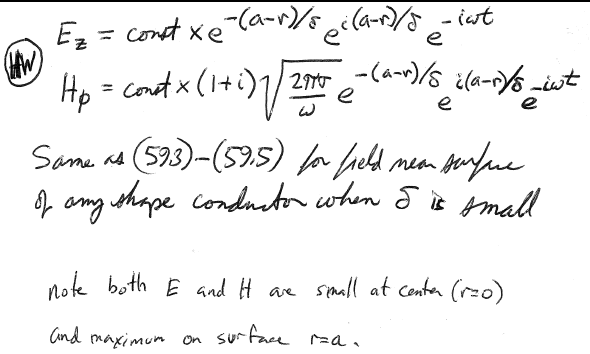 E_z = const × e^{-(a-r)/δ} e^{i(a-r)/δ} e^{-iωt}
HW
H_φ = const × (1+i) √(2πσ/ω) e^{-(a-r)/δ} e^{i(a-r)/δ} e^{-iωt}
Same as (59.3)-(59.5) for field near surface
of any shape conductor when δ is small
note both E and H are small at center (r=0)
and maximum on surface r=a.